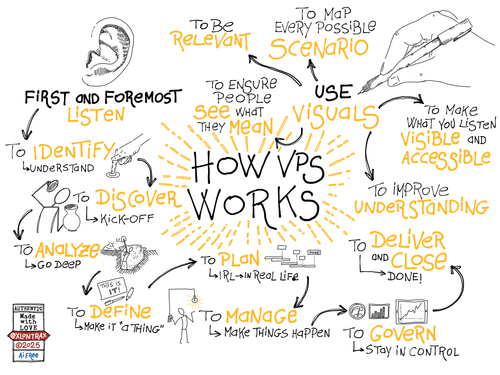 HOW VPS
WORKS
FIRST AND FOREMOST
LISTEN
TO IDENTIFY
UNDERSTAND
TO DISCOVER
KICK-OFF
TO ANALYZE
GO DEEP
THIS IS
IT!
TO DEFINE
MAKE IT "A THING"
TO PLAN
IRL → IN REAL LIFE
TO MANAGE
MAKE THINGS HAPPEN
TO GOVERN
STAY IN CONTROL
TO DELIVER
AND CLOSE
DONE!
USE
VISUALS
TO ENSURE
PEOPLE
SEE WHAT
THEY MEAN
TO BE
RELEVANT
TO MAP
EVERY POSSIBLE
SCENARIO
TO MAKE
WHAT YOU LISTEN
VISIBLE AND
ACCESSIBLE
TO IMPROVE
UNDERSTANDING
AUTHENTIC
Made
with
LOVE
@XLONTRAX
©2025
Ai FREE